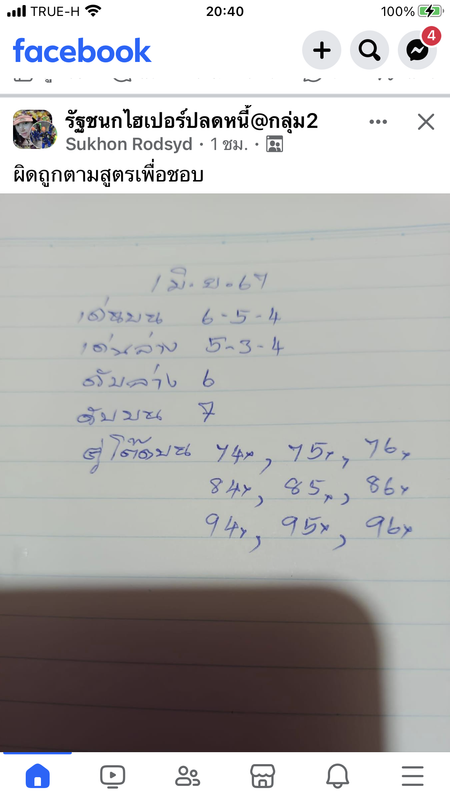 TRUE-H 20:40 100%
facebook
4
รัฐชนกไฮเปอร์ปลดหนี้@กลุ่ม2
Sukhon Rodsyd · 1 ชม. ·
ผิดถูกตามสูตรเพื่อชอบ
1 มิ.ย.67
เด่นบน 6-5-4
เด่นล่าง 5-3-4
ดับล่าง 6
ดับบน 7
สู่โต๊ดบน 74x, 75x, 76x
84x, 85x, 86x
94x, 95x, 96x